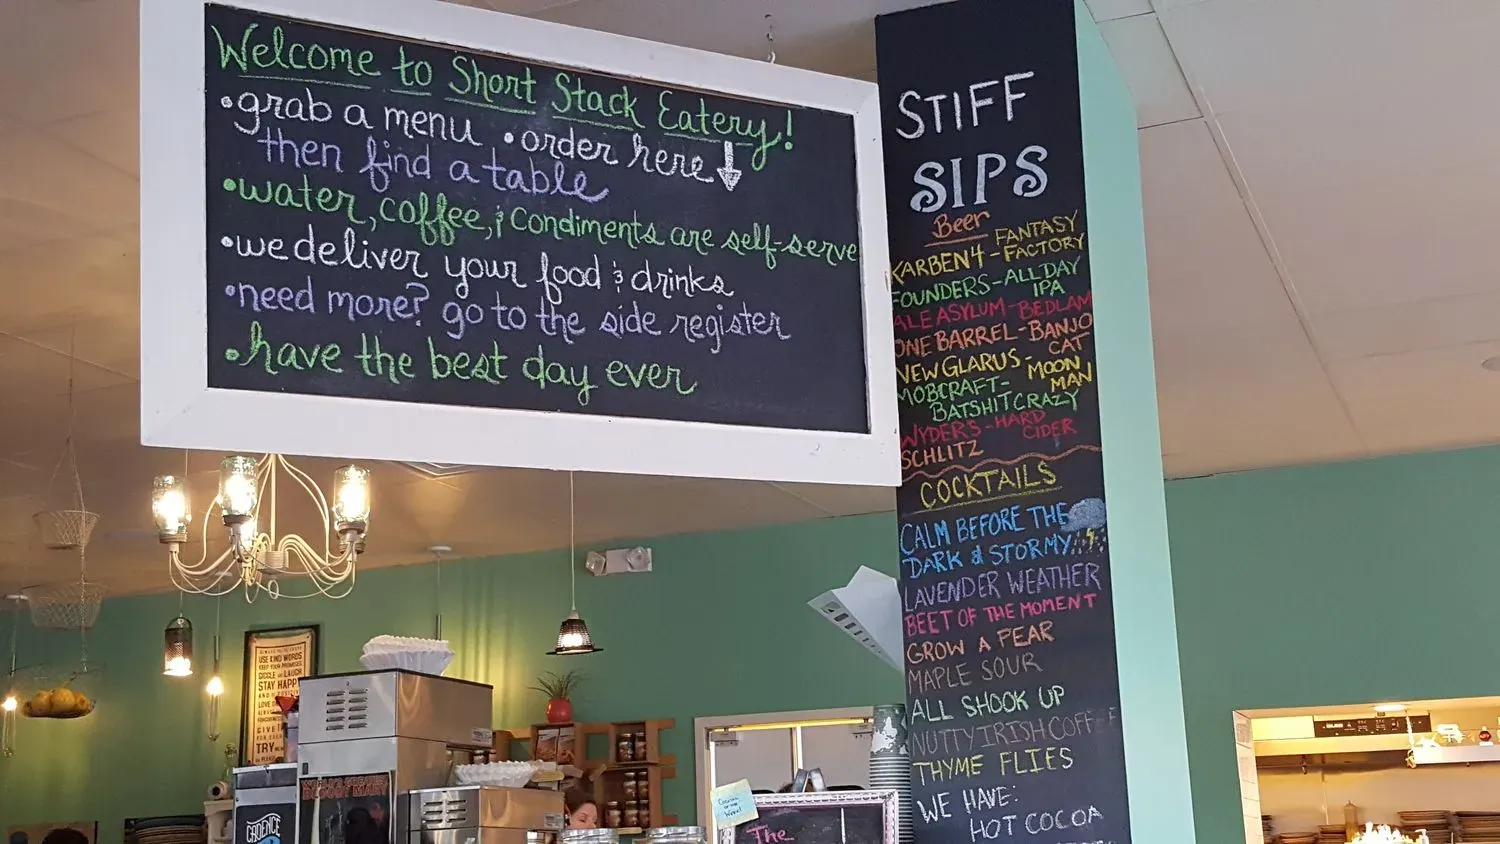 Welcome to Short Stack Eatery!
•grab a menu •order here
then find a table
•water, coffee, & condiments are self-serve
•we deliver your food & drinks
•need more? go to the side register
•have the best day ever
STIFF
SIPS
Beer
KARBEN4 - FANTASY FACTORY
FOUNDERS - ALL DAY IPA
ALE ASYLUM - BEDLAM
ONE BARREL - BANJO CAT
NEW GLARUS - MOON MAN
MOBCRAFT - BATSHIT CRAZY
WYDERS - HARD CIDER
SCHLITZ
COCKTAILS
CALM BEFORE THE
DARK & STORMY
LAVENDER WEATHER
BEET OF THE MOMENT
GROW A PEAR
MAPLE SOUR
ALL SHOOK UP
NUTTY IRISH COFFEE
THYME FLIES
WE HAVE:
HOT COCOA
USE KIND WORDS
KEEP YOUR PROMISES
GIGGLE and LAUGH
STAY HAPPY
LOVE
TRY
BLOODY MARY
CADENCE
The